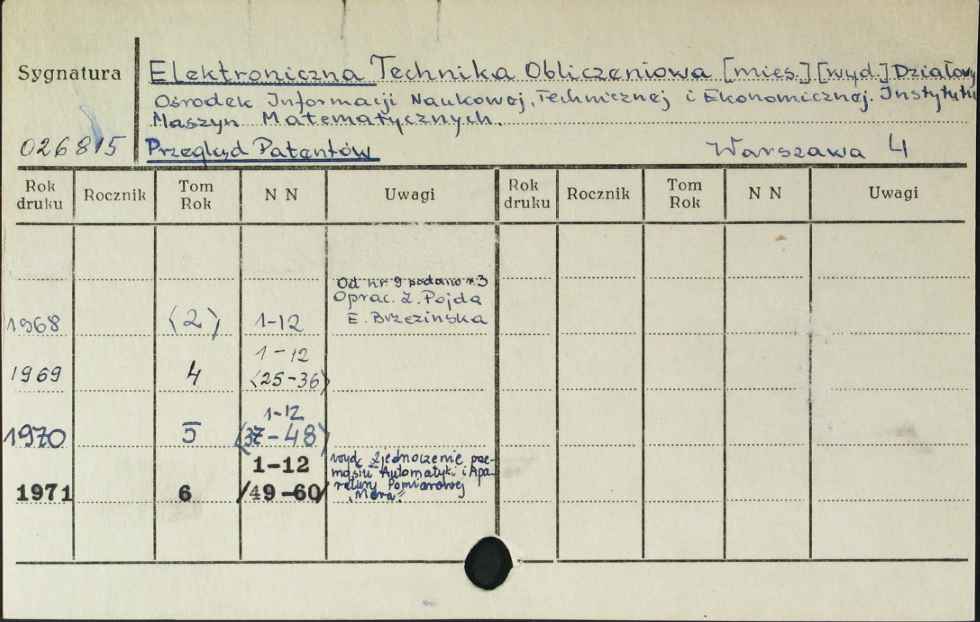 Sygnatura
Elektroniczna Technika Obliczeniowa [mies.] [wyd.] Działowy
Ośrodek Informacji Naukowej, Technicznej i Ekonomicznej. Instytutu
Maszyn Matematycznych.
026815 Przegląd Patentów Warszawa 4
Rok druku Rocznik Tom Rok N N Uwagi Rok druku Rocznik Tom Rok N N Uwagi
Od nr 9 podano
Oprac. Z. Pojda
1968 (2) 1-12 E. Brzezinska
1-12
1969 4 (25-36)
1-12
1970 5 (37-48)
1-12 wyd. Zjednoczenie prze-
mysłu Automatyki i Apa-
1971 6 /49-60/ ratury Pomiarowej
"Mera"